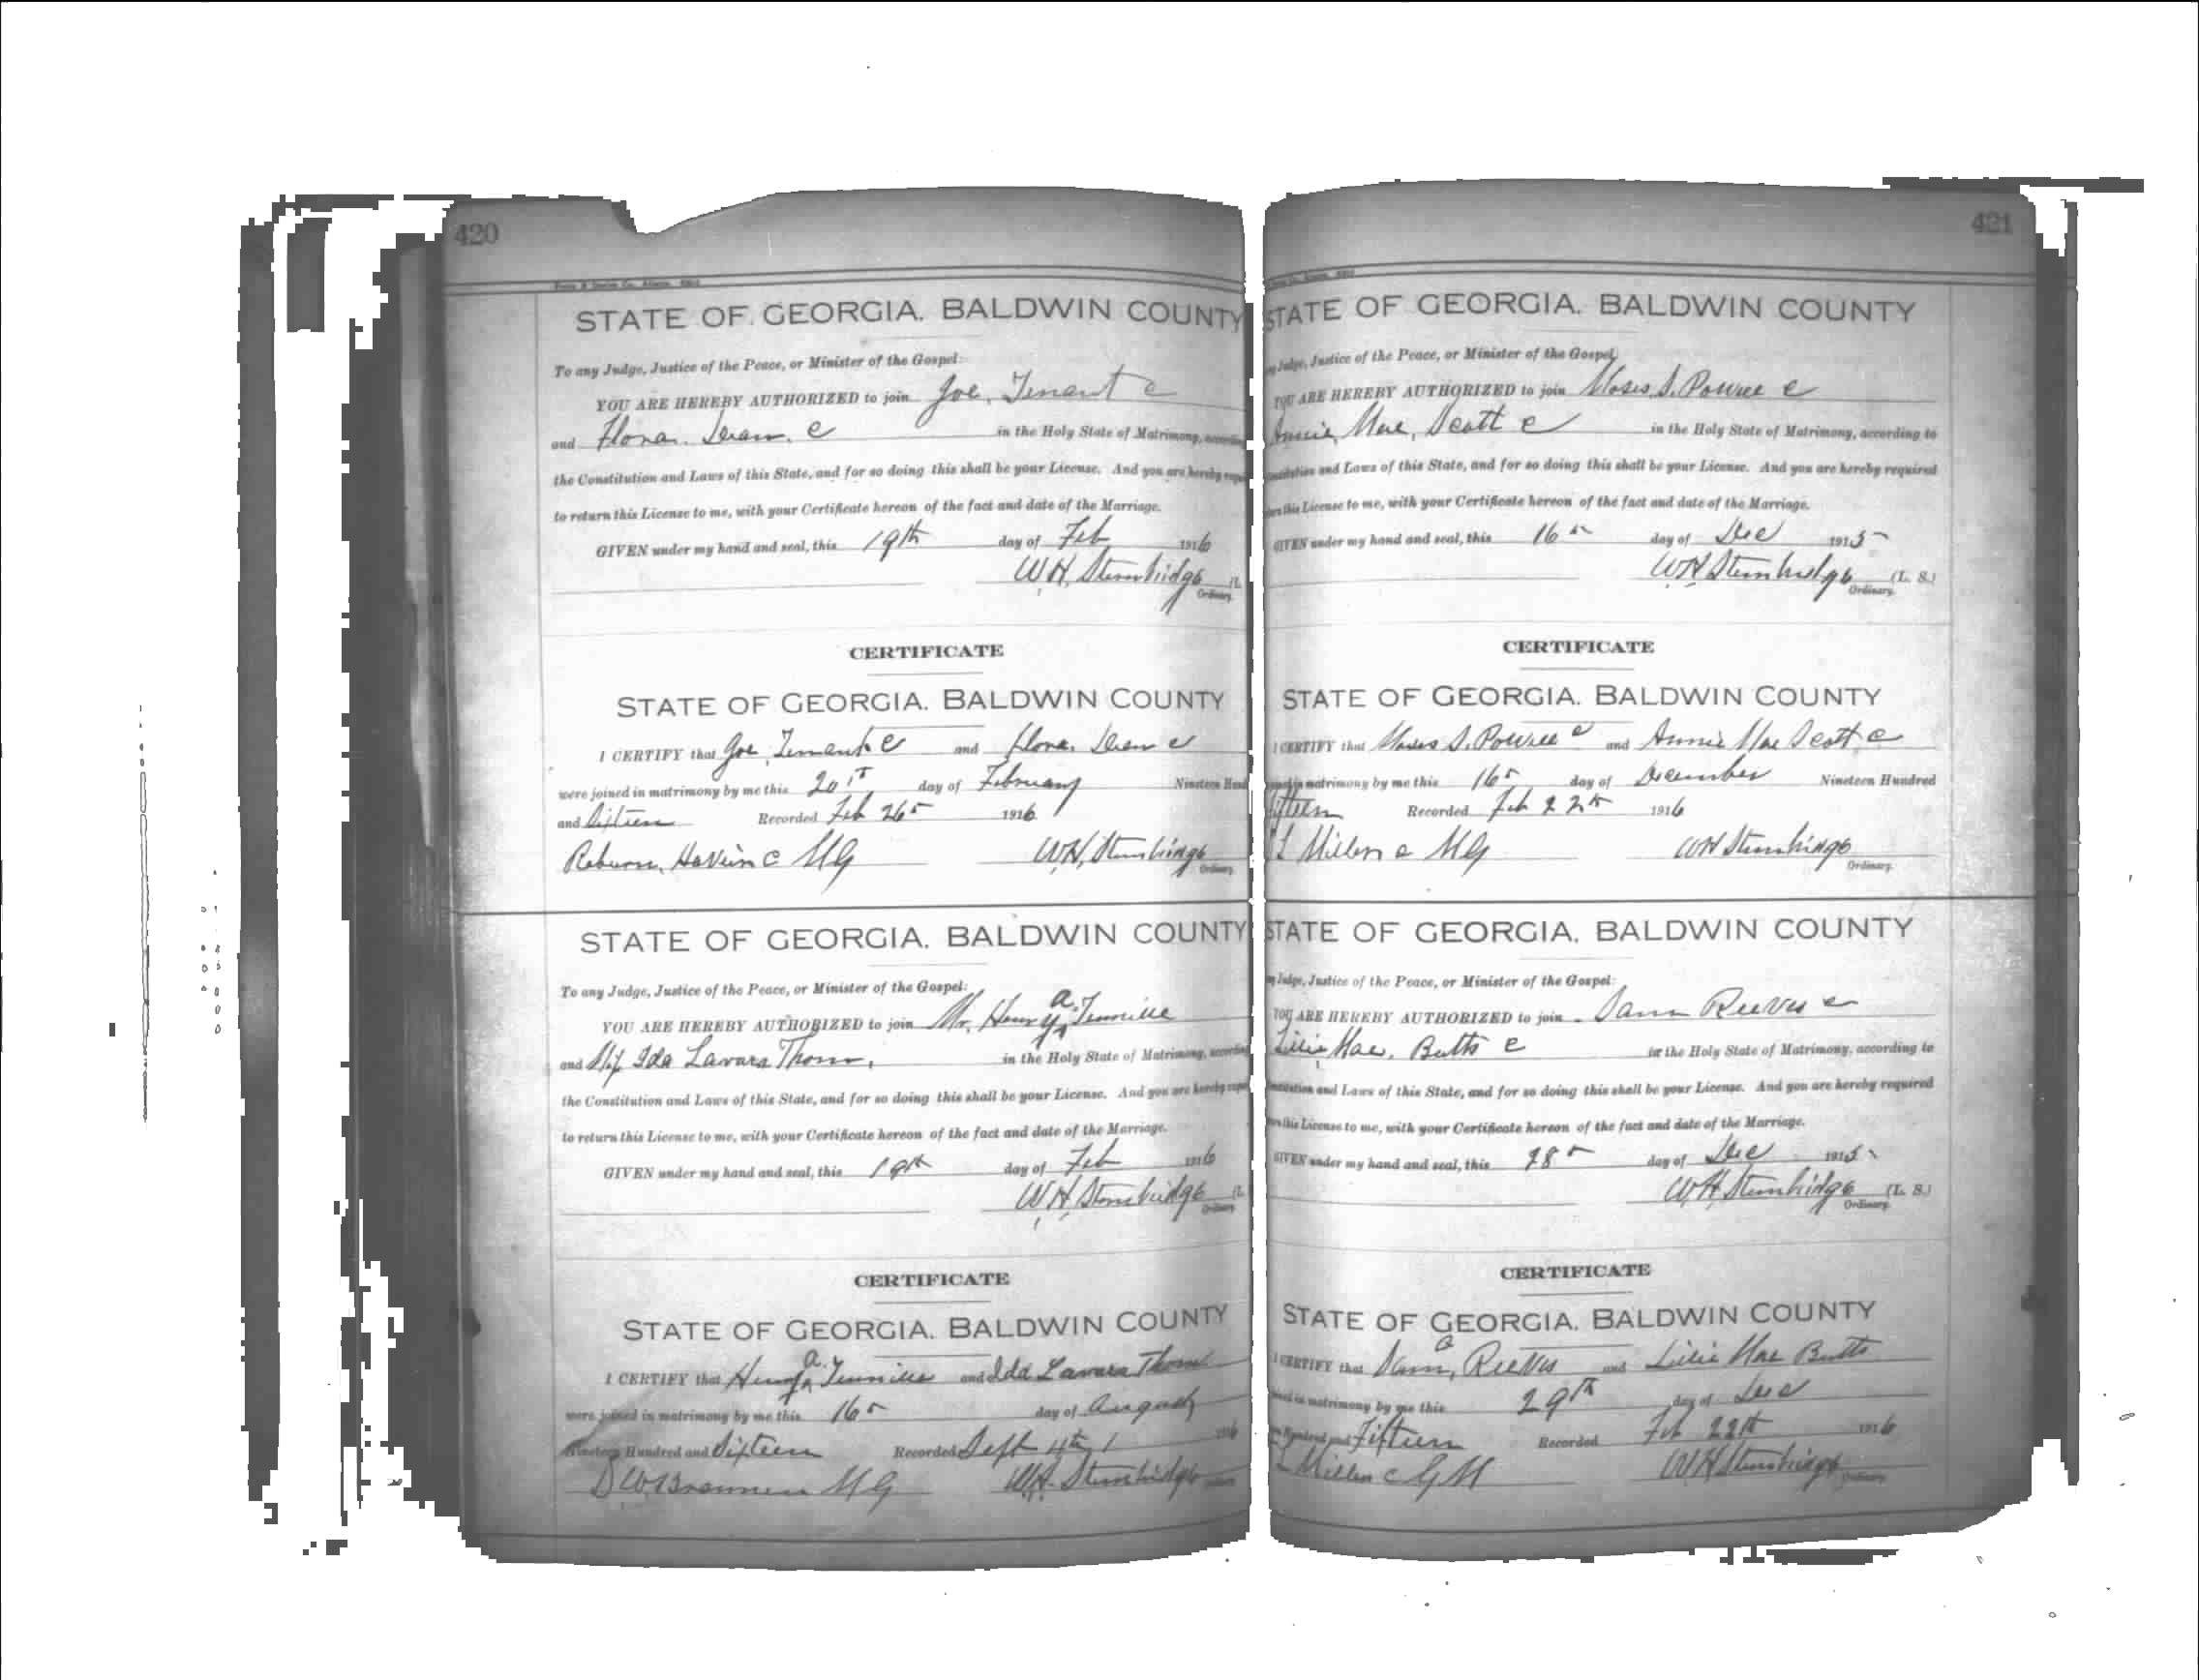 420
STATE OF GEORGIA. BALDWIN COUNTY
To any Judge, Justice of the Peace, or Minister of the Gospel:
YOU ARE HEREBY AUTHORIZED to join Joe, Tenant c
and Flora. c in the Holy State of Matrimony,
the Constitution and Laws of this State, and for so doing this shall be your License. And you are hereby
to return this License to me, with your Certificate hereon of the fact and date of the Marriage.
GIVEN under my hand and seal, this 19th day of Feb 1916
W.H. Stembridge (L.
Ordinary.
CERTIFICATE
STATE OF GEORGIA. BALDWIN COUNTY
I CERTIFY that Joe, Tenant c and Flora. c
were joined in matrimony by me this 20 day of February Nineteen
and Recorded Feb 26 1916
c MG W.H. Stembridge
Ordinary
STATE OF GEORGIA. BALDWIN COUNTY
To any Judge, Justice of the Peace, or Minister of the Gospel:
YOU ARE HEREBY AUTHORIZED to join Mr. Henry A. Tennille
and Ida Thorn, in the Holy State of Matrimony,
the Constitution and Laws of this State, and for so doing this shall be your License. And you are hereby
to return this License to me, with your Certificate hereon of the fact and date of the Marriage.
GIVEN under my hand and seal, this 19th day of Feb 1916
W.H. Stembridge (L.
Ordinary
CERTIFICATE
STATE OF GEORGIA. BALDWIN COUNTY
I CERTIFY that Henry A. Tennille and Ida Thorn
were joined in matrimony by me this 16 day of August
Nineteen Hundred and Sixteen Recorded Sept 4th 1916
MG W.H. Stembridge
421
STATE OF GEORGIA. BALDWIN COUNTY
Judge, Justice of the Peace, or Minister of the Gospel:
YOU ARE HEREBY AUTHORIZED to join Moses S. Powell c
Annie Mae, Scott c in the Holy State of Matrimony, according to
and Laws of this State, and for so doing this shall be your License. And you are hereby required
this License to me, with your Certificate hereon of the fact and date of the Marriage.
GIVEN under my hand and seal, this 16 day of Dec 1915
W.H Stembridge (L. S.)
Ordinary.
CERTIFICATE
STATE OF GEORGIA. BALDWIN COUNTY
I CERTIFY that Moses S. Powell c and Annie Mae Scott c
in matrimony by me this 16 day of December Nineteen Hundred
fifteen Recorded Feb 22 1916
Millen c MG W.H Stembridge
Ordinary.
STATE OF GEORGIA. BALDWIN COUNTY
Judge, Justice of the Peace, or Minister of the Gospel:
YOU ARE HEREBY AUTHORIZED to join Sam Reeves c
Lillie Mae, Butts c in the Holy State of Matrimony, according to
and Laws of this State, and for so doing this shall be your License. And you are hereby required
this License to me, with your Certificate hereon of the fact and date of the Marriage.
GIVEN under my hand and seal, this 28 day of Dec 1915
W.H. Stembridge (L. S.)
Ordinary.
CERTIFICATE
STATE OF GEORGIA. BALDWIN COUNTY
I CERTIFY that Reeves and Lillie Mae Butts
in matrimony by me this 29th day of Dec
Fifteen Recorded Feb 22 1916
Millen c GM W.H Stembridge
Ordinary.